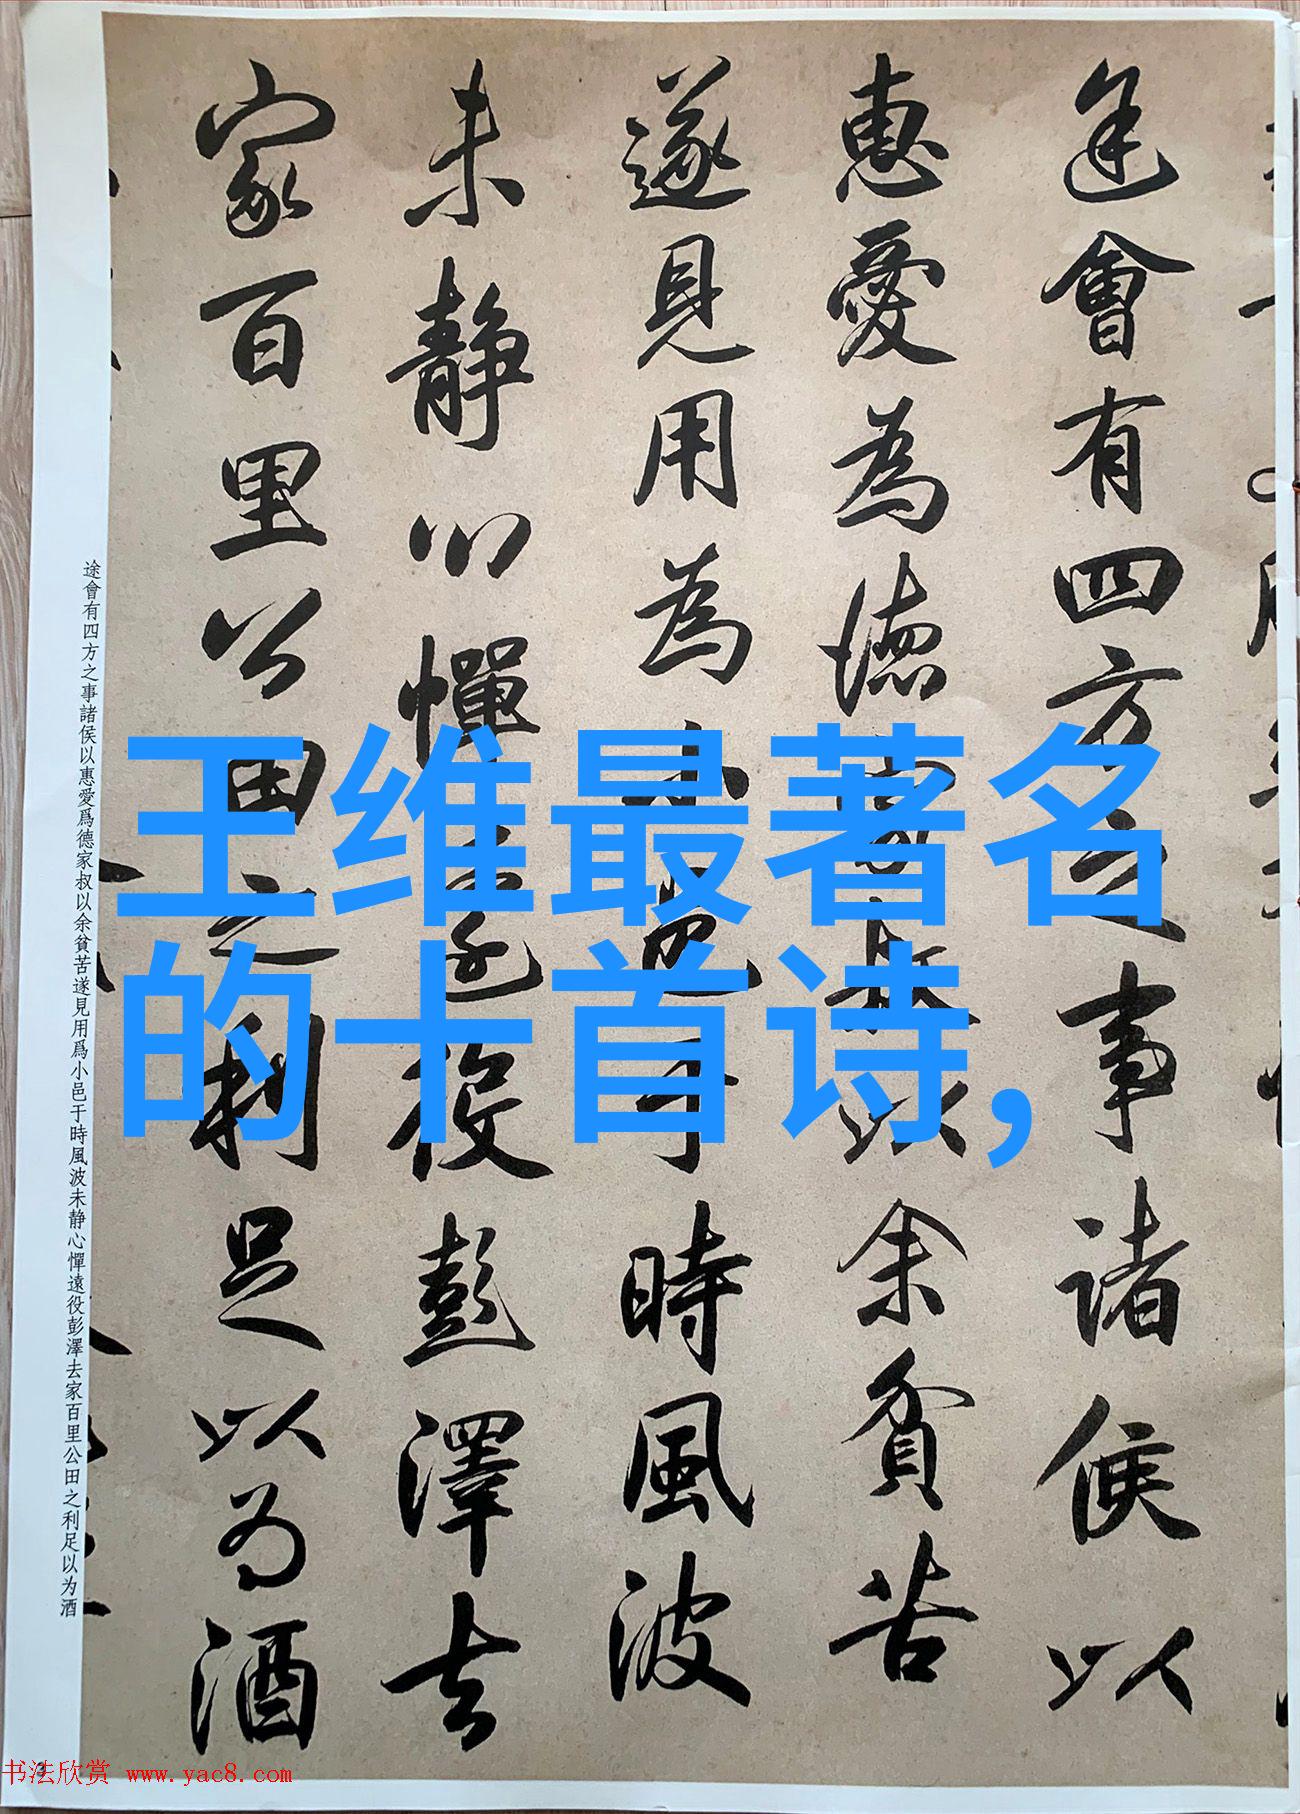 途會有四方之事諸侯以
惠愛為德家叔以余貧苦
遂見用為小邑于時風波
未静心憚遠役彭澤去
家百里公田之利足以为酒
途會有四方之事諸侯以惠愛爲德家叔以余貧苦遂見用爲小邑于時風波未静心憚遠役彭澤去家百里公田之利足以为酒
王维最著名
的十首诗,
3
书法欣赏 www.yac8.com